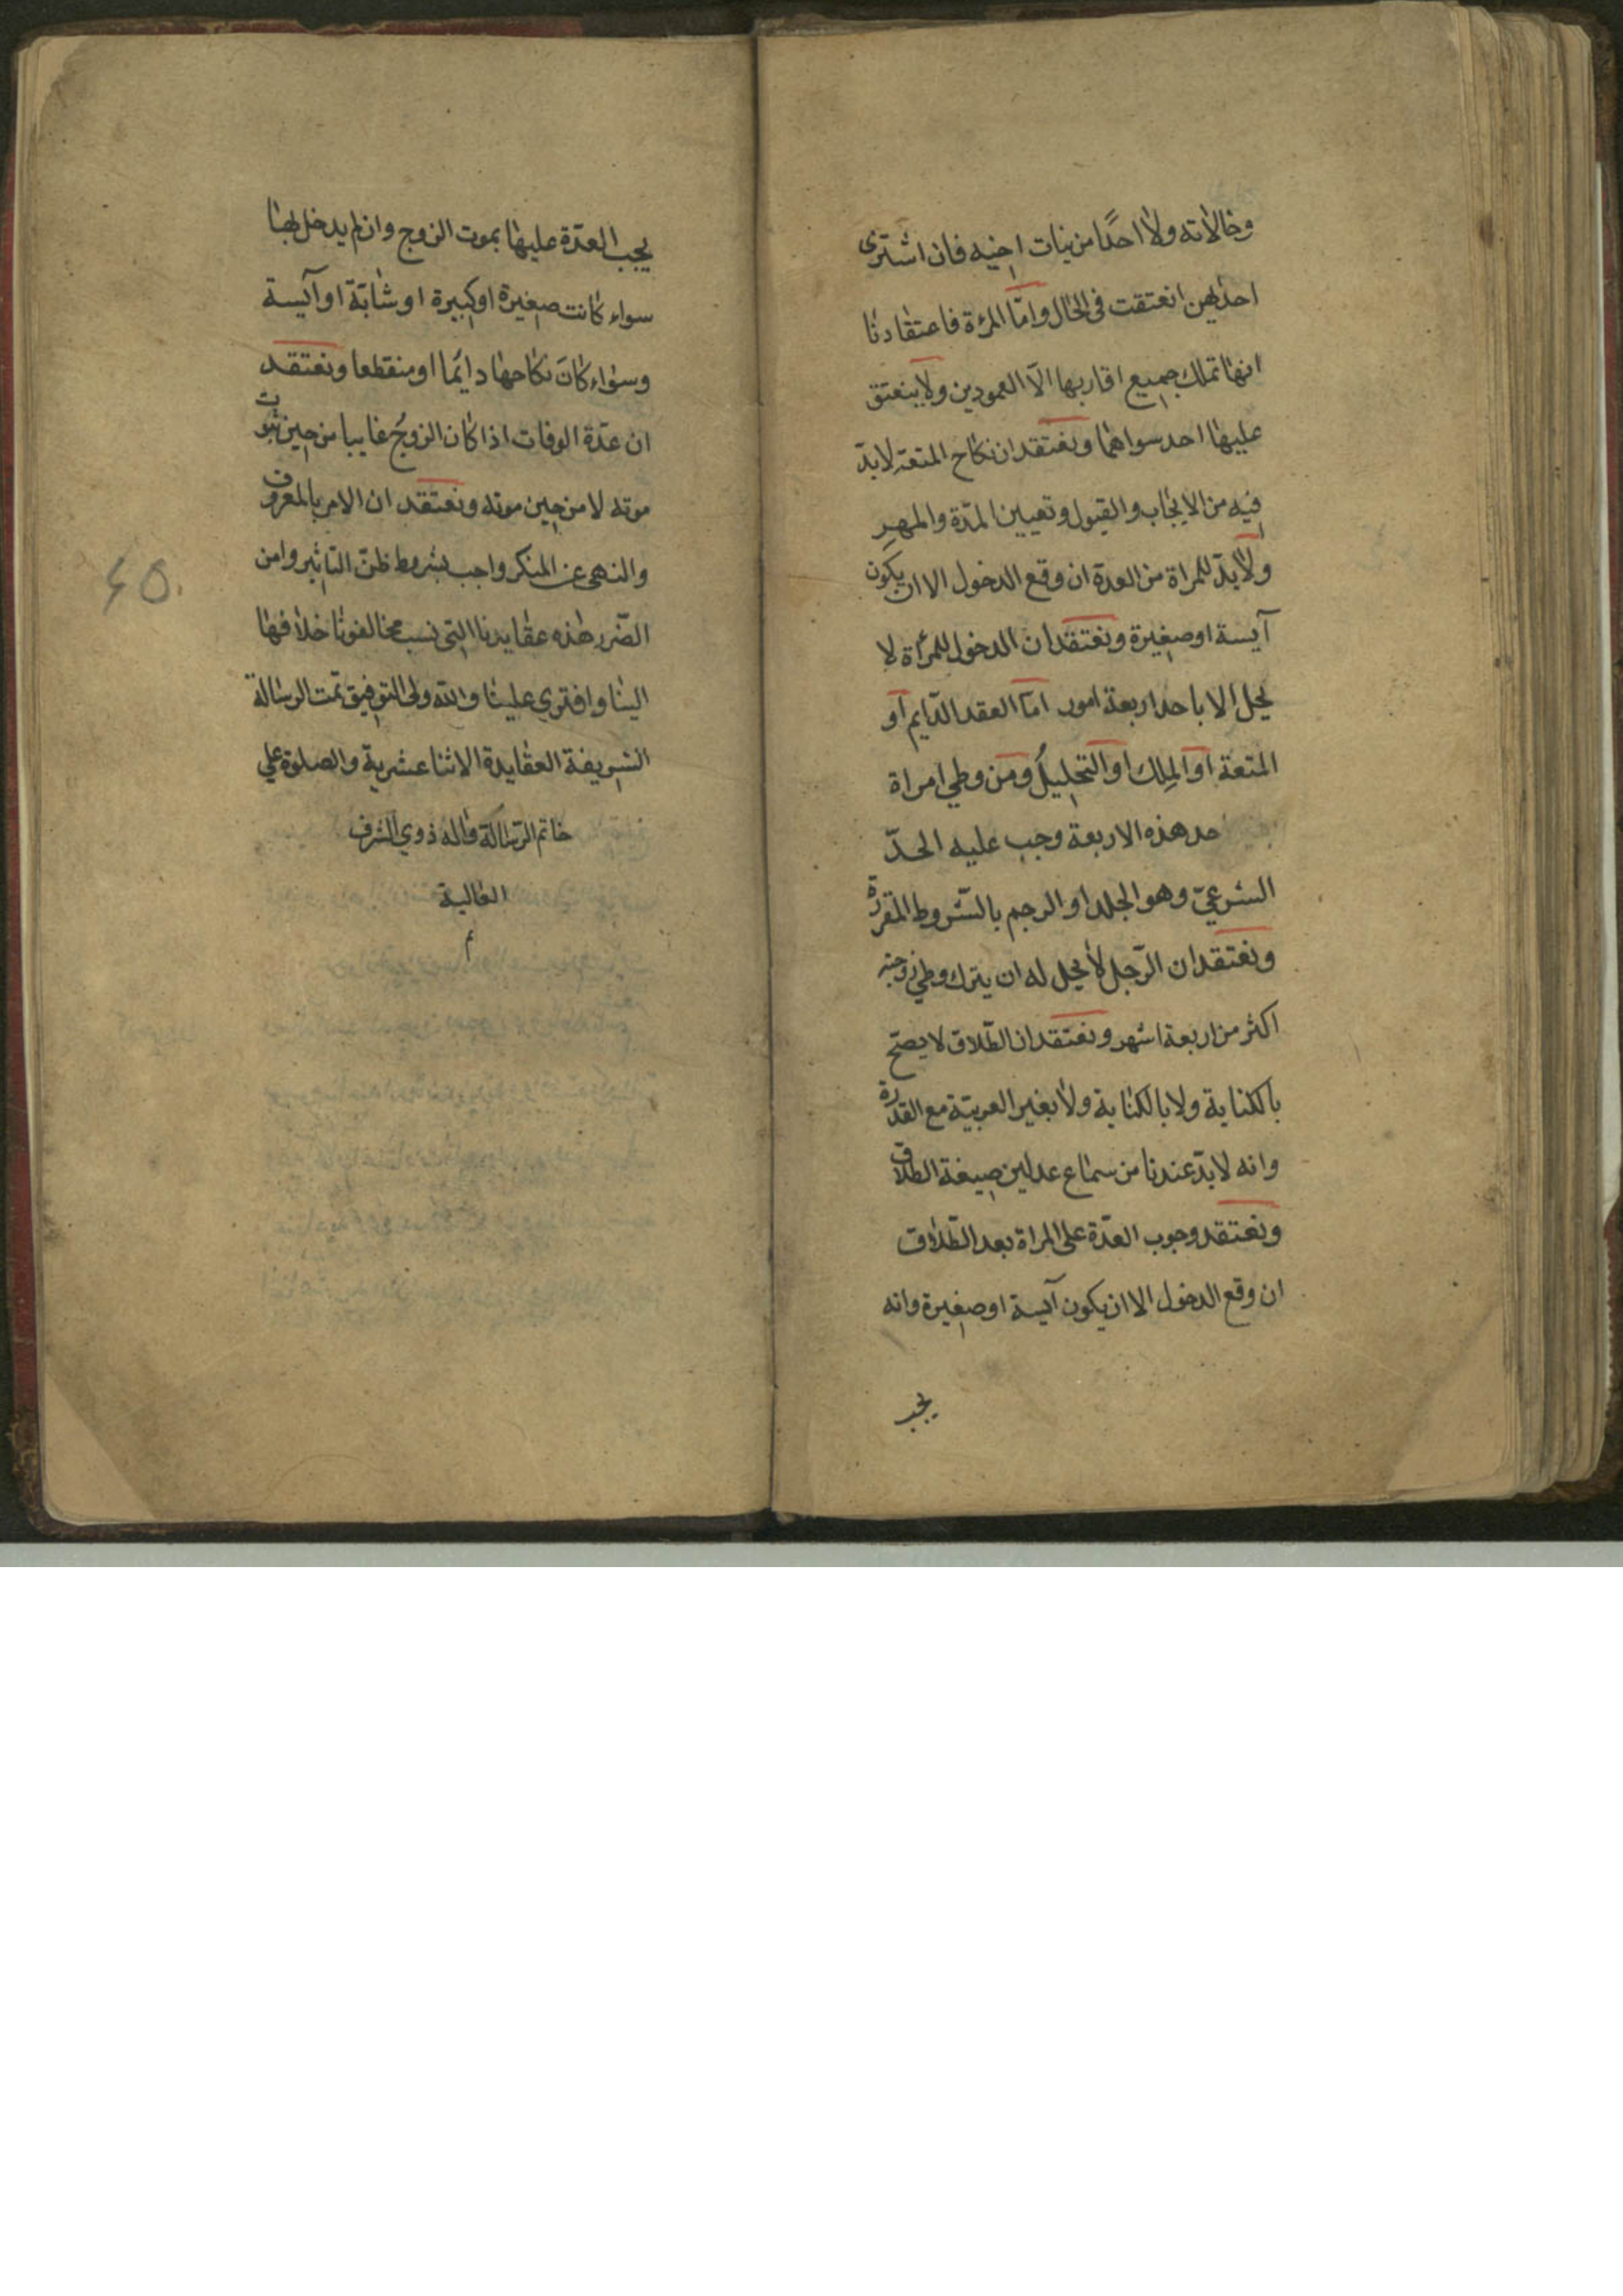 وخالاته ولا احدًا من بنات اخيه فان اشترى
احدٰهن انعتقت فى الحال وامّا المرءة فاعتقادنا
انها تملك جميع اقاربها الّا العمودين ولا ينعتق
عليها احد سواهما ونعتقد ان نكاح المتعة لا بدّ
فيه من الايجاب والقبول وتعيين المدّة والمهر
ولا بدّ للمراة من العدة ان وقع الدخول الا ان يكون
آيسة او صغيرة ونعتقد ان الدخول للمرأة لا
يحل الا باحد اربعة امور امّا العقد الدّايم او
المتعة او الملك او التحليل ومن وطي امراة
حد هذه الاربعة وجب عليه الحدّ
الشرعيّ وهو الجلد او الرجم بالشّروط المقرّرة
ونعتقد ان الرّجل لا يحل له ان يترك وطي زوجته
اكثر من اربعة اشهر ونعتقد ان الطّلاق لا يصحّ
بالكناية ولا بالكتابة ولا بغير العربيّة مع القدرة
وانه لا بدّ عندنا من سماع عدلين صيغة الطلاق
ونعتقد وجوب العدّة على المراة بعد الطّلاق
ان وقع الدخول الا ان يكون آيسة او صغيرة وانه
يجب
يجب العدّة عليها بموت الزوج وان لم يدخل بها
سواء كانت صغيرة او كبيرة او شابّة او آيسة
وسواء كان نكاحها دايما او منقطعا ونعتقد
ان عدّة الوفات اذا كان الزوج غايبا من حين ثبوت
موته لا من حين موته ونعتقد ان الامر بالمعروف
والنهى عن المنكر واجب بشروط ظنّ التاثير وامن
الضّرر هذه عقايدنا التى نسب مخالفونا خلافها
الينا وافترى علينا والله ولى التوفيق تمت الرسالة
الشريفة العقايدة الاثنا عشرية والصلوة علي
خاتم الرّسالة واله ذوي الشرف
العالية
م
٤٥